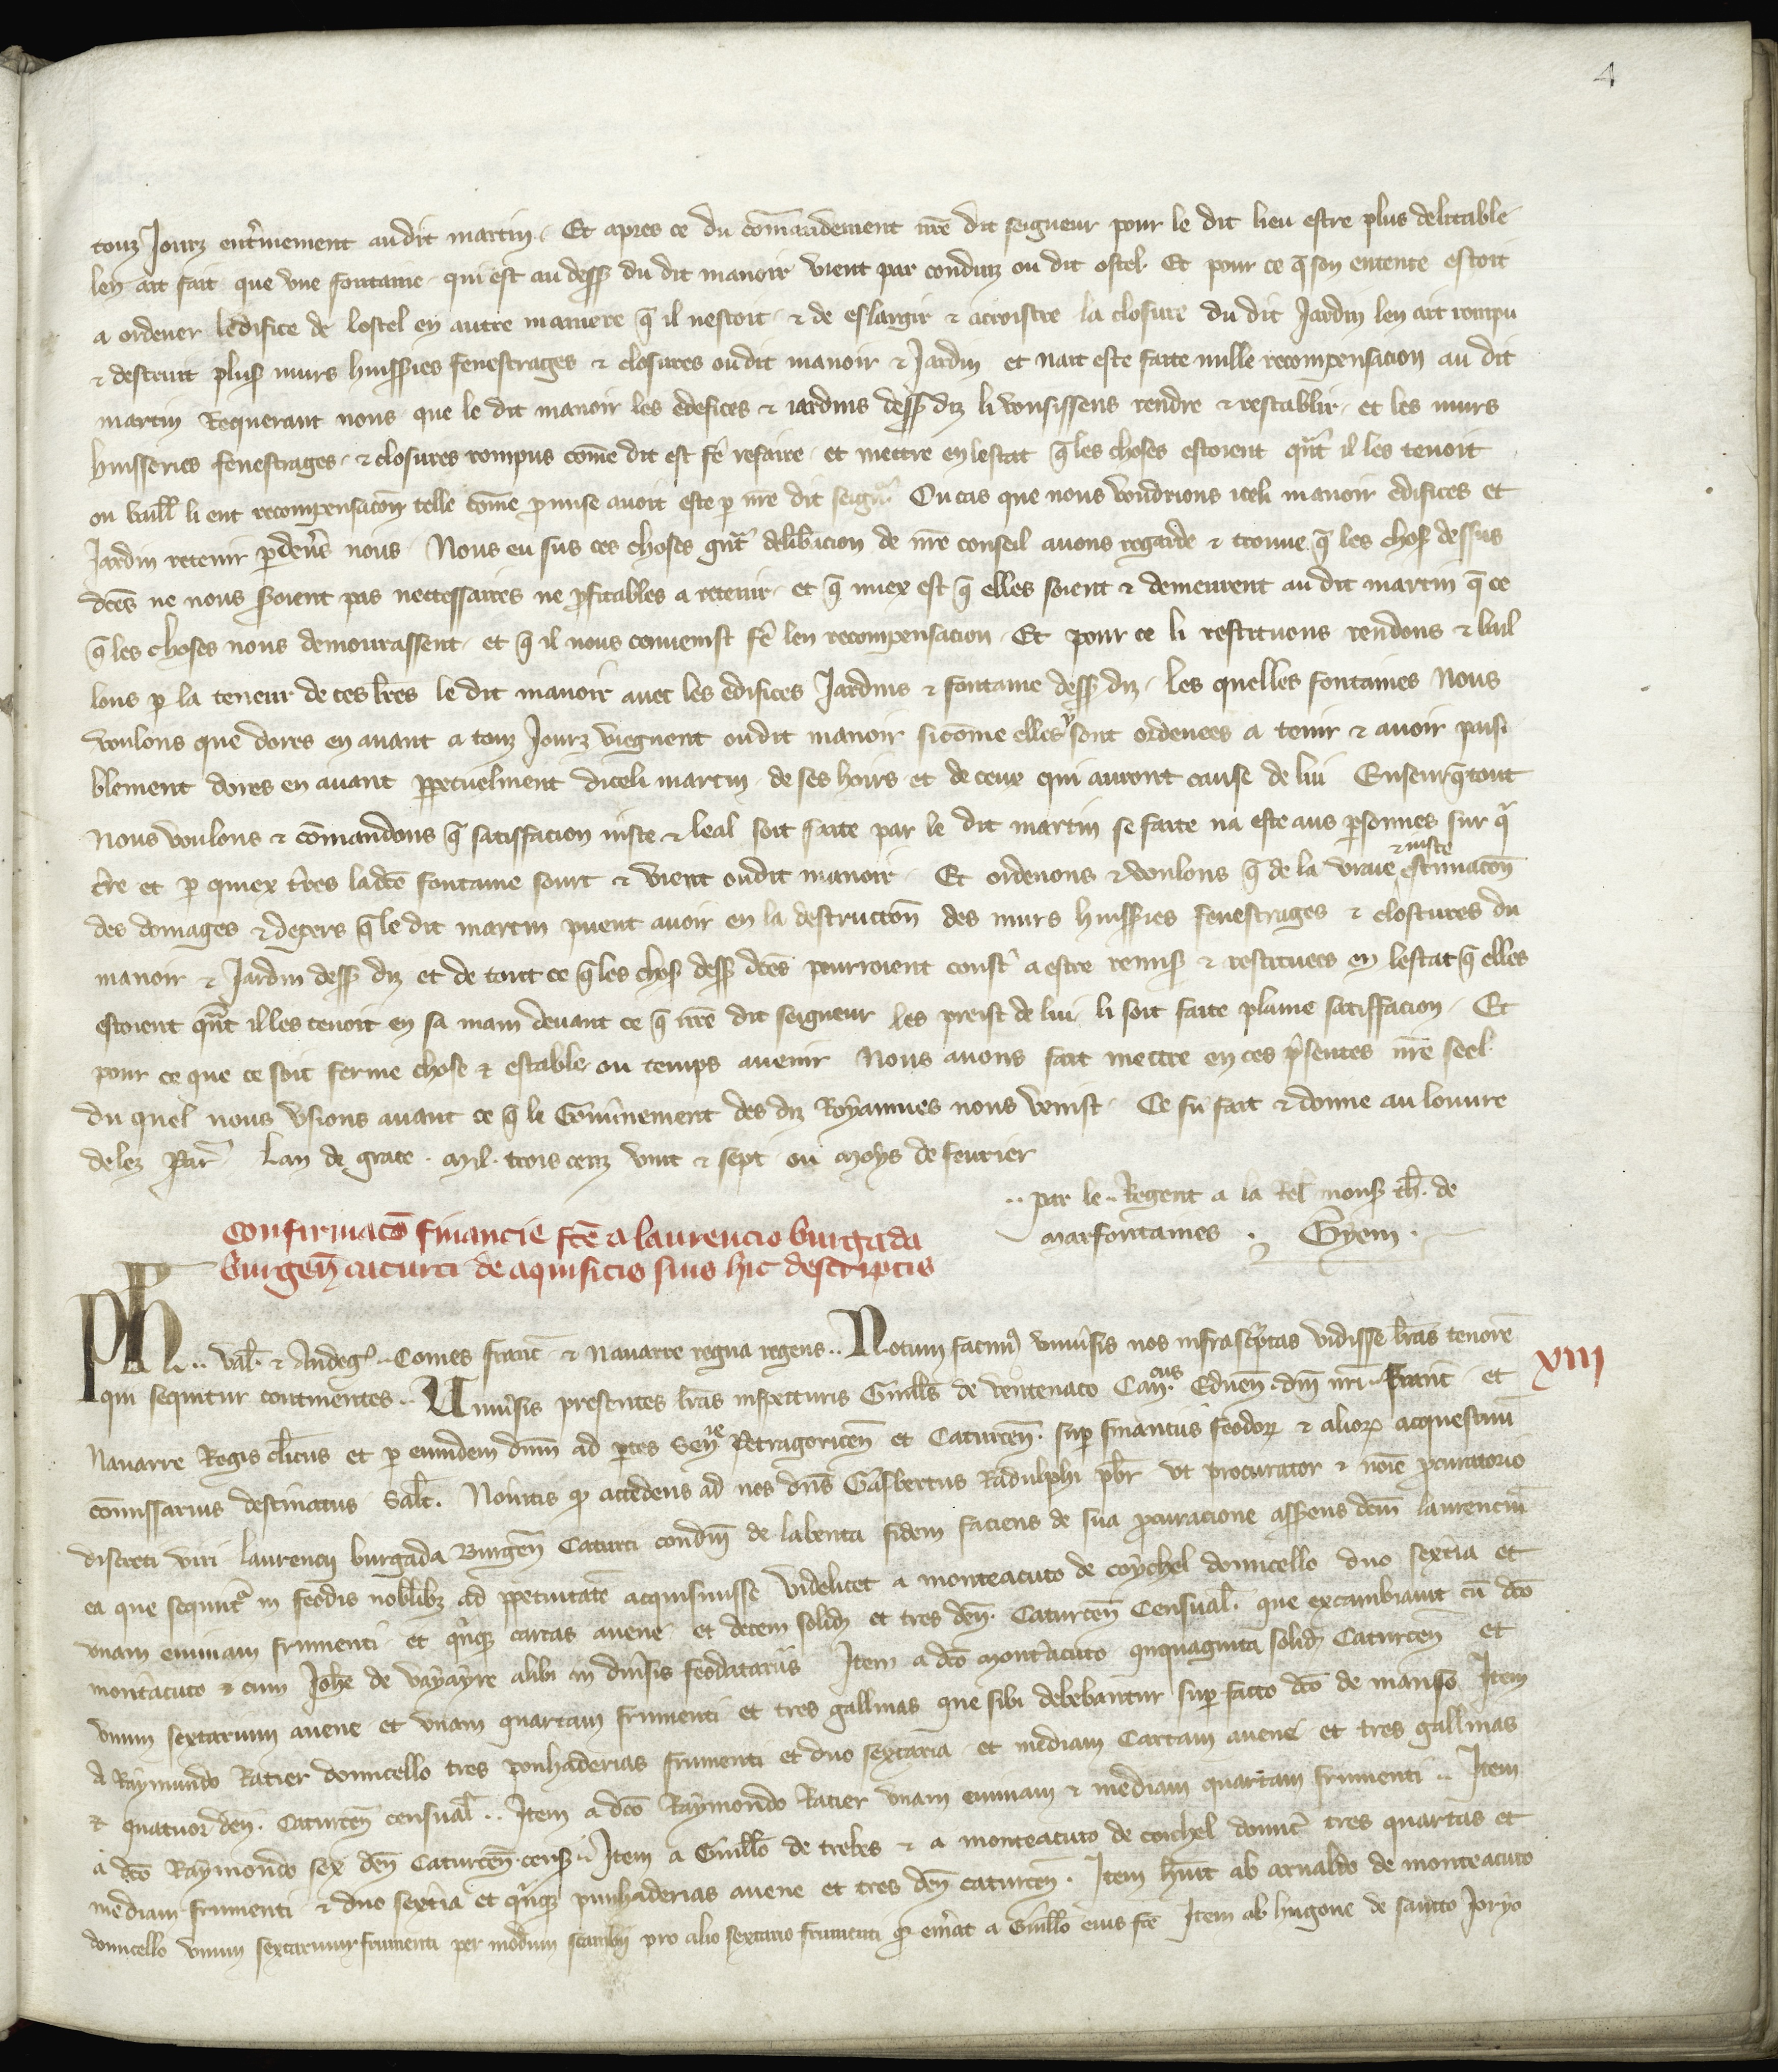 4
touz Jourz ent'inement audit martin. Et apres ce du com̄andement nr̄e dit seigneur pour le dit lieu estre plus delitable
len ait fait que vne fontaine qui est au dess9 du dit manoir vient par conduiz ou dit ostel. Et pour ce q̄ son entente estoit
a ordener ledifice de lostel en autre maniere q̄ il nestoit & de eslargir & acroistre la closure du dit Jardin len ait rompu
& destruit plus9 murs huisseries fenestrages & closures oudit manoir & Jardin et nait este faite nulle recompensacion au dit
martin Requerant nous que le dit manoir les edefices & iardins dess9 diz li vousissens rendre & restablir et les murs
huisseries fenestrages & closures rompus com̄e dit est fe' refaire et mettre en lestat q̄ les choses estoient qn̄t il les tenoit
ou baill li ent recompensacōn telle com̄e p'mise auoit este p nr̄e dit seign' Ou cas que nous voudrions iceli manoir edifices et
Jardin retenir p deu's nous. Nous eu sus ces choses gn̄t delib'acion de nr̄e conseil auons regarde & trouue q̄ les chos9 dessus
dc̄es ne nous s'oient pas neccessaires ne p'fitables a retenir et q̄ miex est q̄ elles soient & demeurent au dit martin q̄ ce
q̄ les choses nous demourassent et q̄ il nous conuenist fe' len recompensacion. Et pour ce li restituons rendons & bail
lons p la teneur de ces lr̄es le dit manoir auec les edifices Jardins & fontaine dess9 diz. les quelles fontaines Nous
voulons que dores en auant a touz Jourz viegnent oudit manoir sicom̄e elles y sont ordenees a tenir & auoir paisi
blement dores en auant ppetuelment diceli martin de ses hoirs et de ceux qui auront cause de lui Enseurq̄tout
Nous voulons & com̄andons q̄ satiffacion iuste & leal soit faite par le dit martin se faite na este aus p'sonnes sur q̄l
t're et p quiex t'res ladc̄e fontaine sourt & vient oudit manoir. Et ordenons & voulons q̄ de la vraie & iuste estimacōn
des domages & depers q̄ le dit martin puent auoir en la destruccōn des murs huisseries fenestrages & clostures du
manoir & Jardin dess9 diz et de tout ce q̄ les chos9 dess9 dc̄es pourroient coust' a estre remis9 & restituees en lestat q̄ elles
estoient qn̄t il les tenoit en sa main deuant ce q̄ nr̄e dit seigneur les preist de lui li soit faite plaine satiffacion. Et
pour ce que ce soit ferme chose & estable ou temps auenir Nous auons fait mettre en ces p'sentes nr̄e seel
du quel nous vsions auant ce q̄ li Gou'nement des diz Royaumes nous venist. Ce fu fait & donne au louure
delez Par' Lan de grace. Mil. trois cenz vint & sept ou Moys de feurier
.. par le .. Regent a la Rel' mons9 th̄. de
marfontaines . Gyem .
Confirmacō financie fc̄e a laurencio burgada
burgen̄ caturci de aquisicis suis hic descriptis
XIII
Ph .. val' & Andeg' .. Comes franc̄ & Nauarre regna regens .. Notum facim9 vniu'sis nos infrasc'ptas vidisse lr̄as tenorē
qui sequitur continentes .. Uniu'sis presentes lr̄as inspecturis Guill's de ventenaco Can.cus Eduen̄. dn̄i nr̄i .. Franc̄ et
Nauarre Regis cl'icus et p eumdem dn̄m ad p'tes Sen.re Petragoricen̄ et Caturcen̄. sup financiis feodor9 & alior9 acquestuū
com̄issarius destinatus Salt'. Nou'itis q' accedens ad nos dn̄s Gasbertus Radulphi p'br vt procurator & noīe p'curatorio
discreti viri laurencij burgada Burgen̄ Caturci condm̄ de labenta fidem faciens de sua p'curacione asserens dc̄m laurenciū
ea que sequnt' in feodis nobilib9 ad ppetuitatē acquisiuisse videlicet a monteacuto de coychel domicello duo sext'ia et
vnam eminam frumenti et q'nq9 cartas auene et decem solid9 et tres den̄. Caturcen̄ Censual'. que excambiauit cū dc̄o
mont'acuto & cum Joh̄e de vayayre alibi in diu'sis feodatariis Item a dc̄o mont'acuto ququaginta solid9 Caturcen̄ et
vnum sextarium auene et vnam quartam frumenti et tres gallinas que sibi debebantur sup facto dc̄o de manso Item
A Raymundo Ratier domicello tres ponhaderias frumenti et duo sextaria et mediam Cartam auene et tres gallinas
& quatuor den̄. Caturcen̄ censual' .. Item a dc̄o Raymondo Ratier vnam eminam & mediam quartam frumenti .. Item
a dc̄o Raymondo sex den̄ Caturcen̄. cens9 .. Item a Guill'o de trebes & a monteacuto de coichel domic' tres quartas et
mediam frumenti & duo sext'ia et q'nq9 punhaderias auene et tres den̄ caturcen̄. Item h'uit ab arnaldo de monteacuto
domicello vnum sextarium frumenti per modum scambij pro alio sextario frumenti q' em'at a Guill'o eius fr̄e Item ab hugone de sancto Joryo